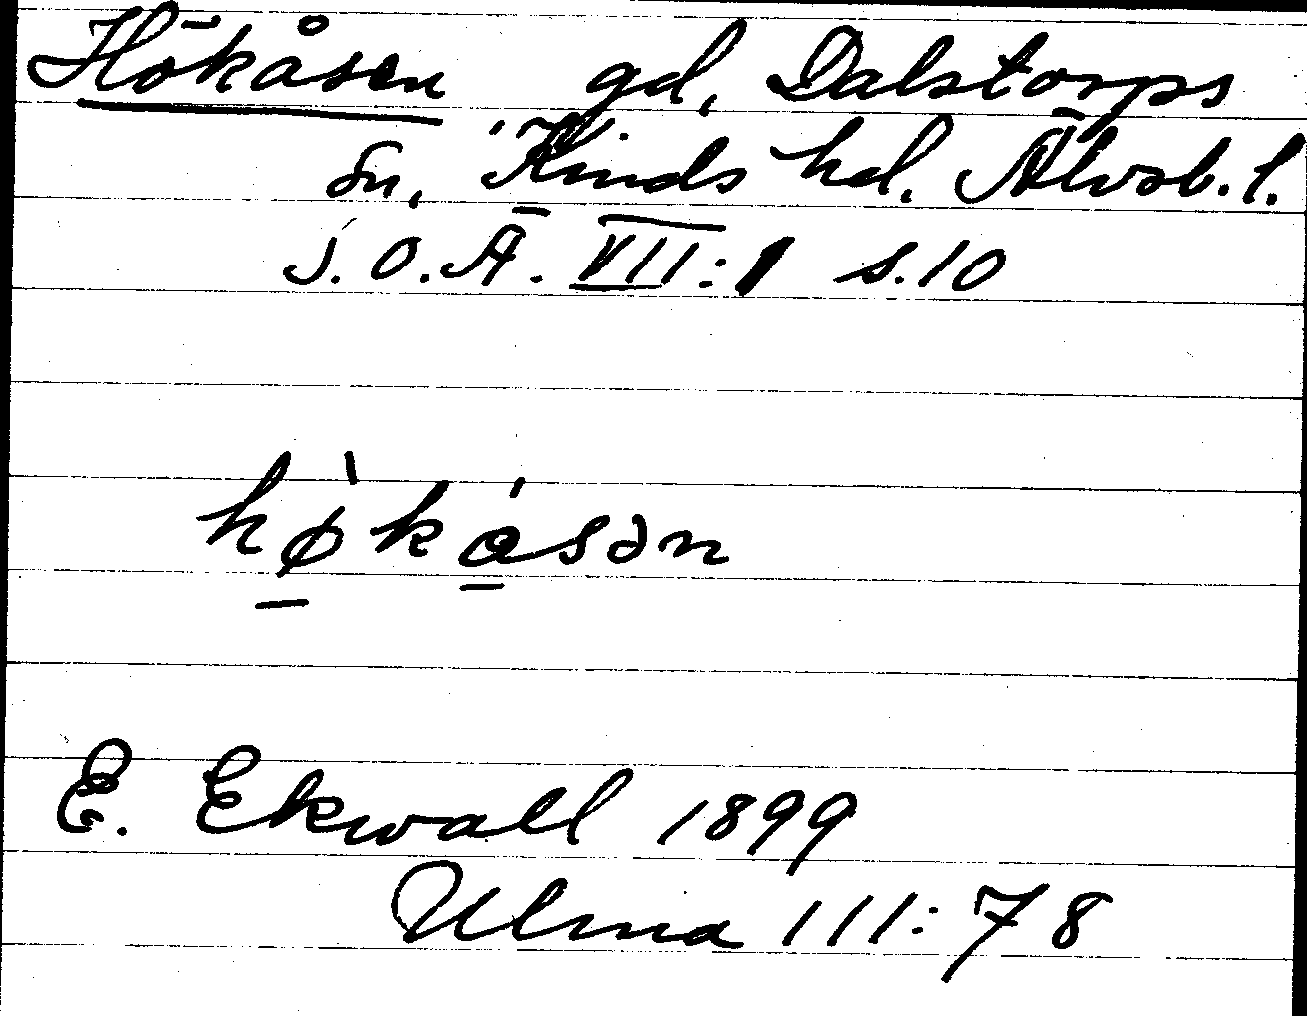 Hökåsen gd, Dalstorps
sn, Kinds hd. Älvsb. l.
S. O. Ä. VII:1 s. 10
hø̠̀kǻ̠sən
E. Ekwall 1899
Ulma 111:78